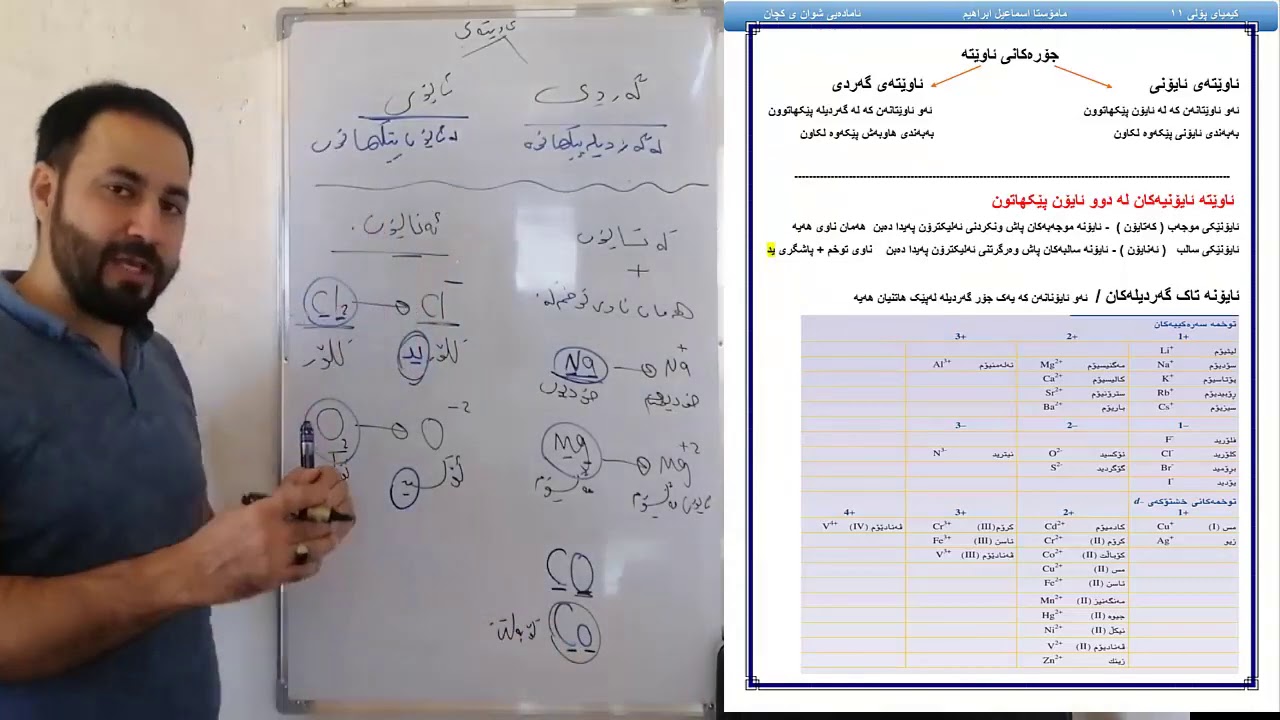 کیمیای پۆلی ١١
مامۆستا اسماعیل ابراهیم
ئامادەیی شوان ی کچان
جۆرەکانی ئاوێتە
ئاوێتەی ئایۆنی
ئاوێتەی گەردی
ئەو ئاوێتانەن کە لە ئایۆن پێکهاتوون
بەبەندی ئایۆنی پێکەوە لکاون
ئەو ئاوێتانەن کە لە گەردیلە پێکهاتوون
بەبەندی هاوبەش پێکەوە لکاون
ئاوێتە ئایۆنیەکان لە دوو ئایۆن پێکهاتون
ئایۆنێکی موجەب ( کەتایۆن ) - ئایۆنە موجەبەکان پاش ونکردنی ئەلیکترۆن پەیدا دەبن هەمان ناوی هەیە
ئایۆنێکی سالب ( ئەنایۆن ) - ئایۆنە سالبەکان پاش وەرگرتنی ئەلیکترۆن پەیدا دەبن ناوی توخم + پاشگری ید
ئایۆنە تاک گەردیلەکان / ئەو ئایۆنانەن کە یەک جۆر گەردیلە لەپێک هاتنیان هەیە
توخمە سەرەکییەکان
1+ 2+ 3+
لیثیۆم Li⁺
سۆدیۆم Na⁺ مەگنیسیۆم Mg²⁺ ئەلەمنیۆم Al³⁺
پۆتاسیۆم K⁺ کالیسیۆم Ca²⁺
ڕۆبیدیۆم Rb⁺ سترۆنیۆم Sr²⁺
سیزیۆم Cs⁺ باریۆم Ba²⁺
1– 2– 3–
فلۆرید F⁻
کلۆرید Cl⁻ ئۆکسید O²⁻ نیترید N³⁻
برۆمید Br⁻ گۆگردید S²⁻
یۆدید I⁻
توخمەکانی خشتۆکەی d-
1+ 2+ 3+ 4+
مس (I) Cu⁺ کادمیۆم Cd²⁺ کرۆم (III) Cr³⁺ ڤەنادیۆم (IV) V⁴⁺
زیو Ag⁺ کرۆم (II) Cr²⁺ ئاسن (III) Fe³⁺
کۆباڵت (II) Co²⁺ ڤەنادیۆم (III) V³⁺
مس (II) Cu²⁺
ئاسن (II) Fe²⁺
مەنگەنیز (II) Mn²⁺
جیوە (II) Hg²⁺
نیکڵ (II) Ni²⁺
ڤەنادیۆم (II) V²⁺
زینک Zn²⁺
گەردی
ئایۆنی
کەتایۆن
ئەنایۆن
+
–
هەمان ناوی توخم
Cl₂ Cl⁻
کلۆر کلۆرید
Na Na⁺
O₂ O⁻²
Mg Mg⁺²
CO
Co کۆبەڵت